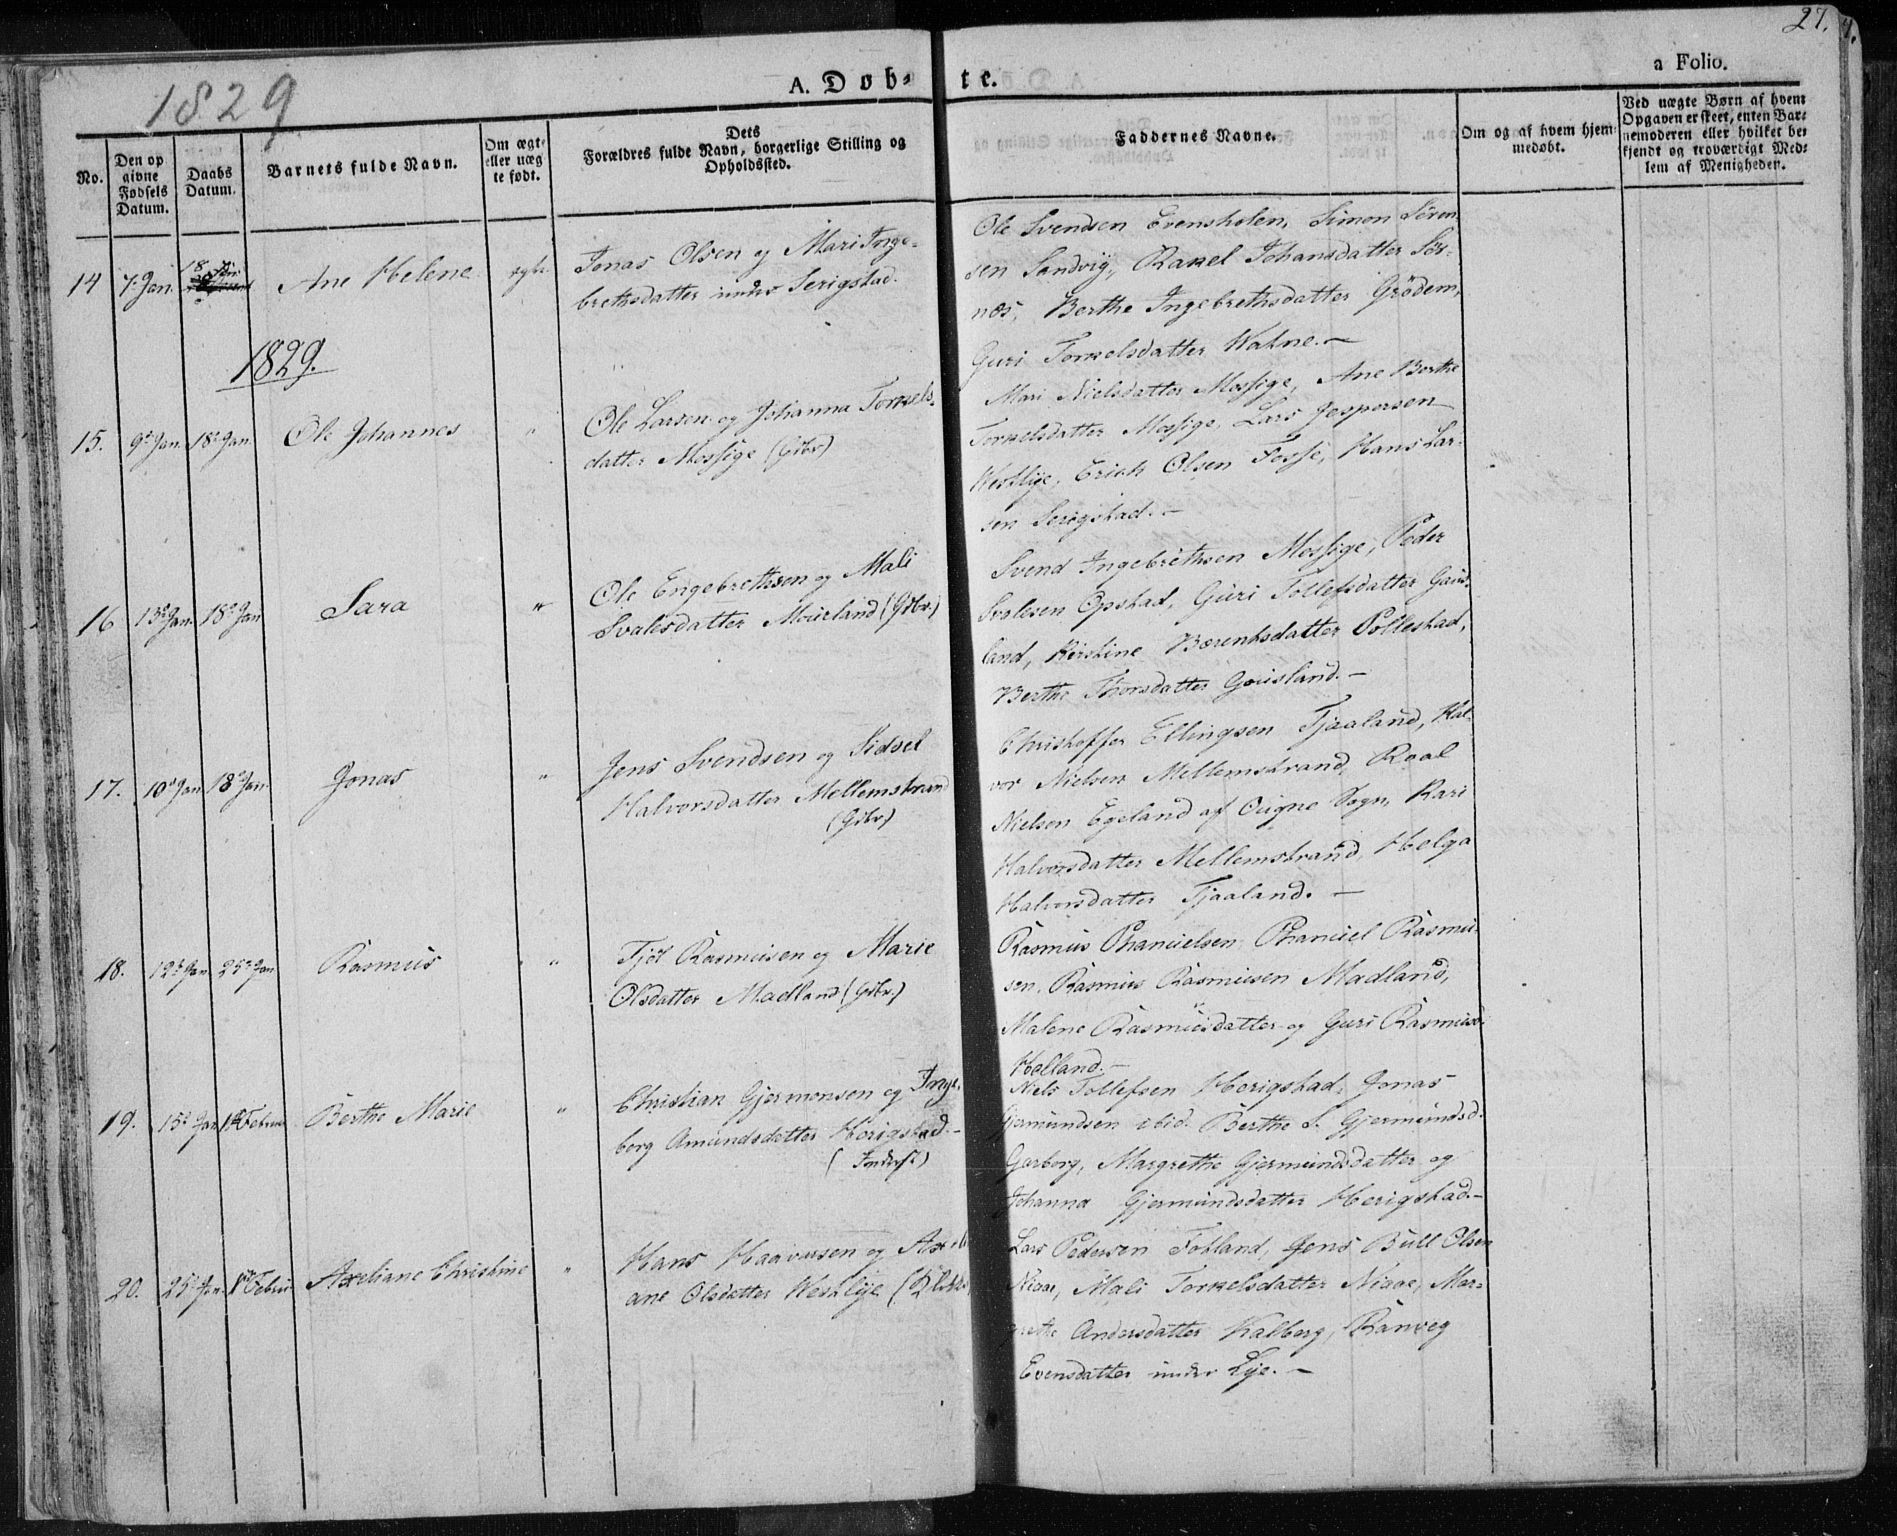 27.
1829
A. Døb-te.
a Folio.
No.
Den op
givne
Fødsels
Datum.
Daabs
Datum.
Barnets fulde Navn.
Om ægte
eller uæg
te født.
Dets
Forældres fulde Navn, borgerlige Stilling og
Opholdssted.
Faddernes Navne.
Om og af hvem hjem-
medøbt.
Ved uægte Børn af hvem
Opgaven er skeet, enten Bar-
nemoderen eller hvilket be-
kjendt og troværdigt Med-
lem af Menigheden.
14 7. Jan. 18 Jan Ane Helene ægte
Jonas Olsen og Mari Inge-
brethsdatter under Serigstad.
Ole Svendsen Evensholen, Simon Sören-
sen Sandvig, Rakel Johansdatter Sör-
næs, Berthe Ingebrethsdatter Grödem,
Guri Torkelsdatter Watne.-
1829.
15. 9de Jan. 18de Jan. Ole Johannes "
Ole Larsen og Johanna Torkels-
datter Mossige (Gdbr)
Mari Nielsdatter Mossige, Ane Berthe
Torkelsdatter Mossige, Lars Jespersen
Westlye, Erich Olsen Fosse, Hans Lar-
sen Serigstad.-
16 13de Jan. 18de Jan Sara "
Ole Engebrethsen og Mali
Svalesdatter Mourland (Gdbr.)
Svend Ingebrethsen Mossige, Peder
Svalesen Opstad, Guri Tollefsdatter Gaus-
land, Kirstine Bærentsdatter Pollestad,
Berthe Thorsdatter Gousland.-
17. 10de Jan 18de Jan. Jonas "
Jens Svendsen og Sidsel
Halvorsdatter Mellemstrand
(Gdbr)
Christoffer Ellingsen Tjaaland, Hal-
vor Nielsen Mellemstrand, Roal
Nielsen Egeland af Ougne Sogn, Kari
Halvorsdatter Mellemstrand, Helga
Halvorsdatter Tjaaland.-
18. 12de Jan 25de Jan Rasmus "
Tjöl Rasmusen og Marie
Olsdatter Madland (Gdbr.)
Rasmus Phanuelsen, Phanuel Rasmu-
sen, Rasmus Rasmusen Madland,
Malene Rasmusdatter og Guri Rasmusd.
Hölland.-
19. 15de Jan 1ste Februar Berthe Marie "
Christian Gjermonsen og Inge-
borg Amundsdatter Herigstad.-
(Inderst)
Niels Tollefsen Herigstad, Jonas
Gjermundsen ibid. Berthe S. Gjermundsd.
Garborg, Margrethe Gjermundsdatter og
Johanna Gjermundsdatter Herigstad.-
20. 25de Jan. 1ste Februar Axeliane Christine "
Hans Haavesen og Axeli
ane Olsdatter Westlye
Lars Pedersen Fotland, Jens Bull Olsen
Niaae, Mali Torkelsdatter Niaae, Mar-
grethe Andersdatter Kalberg, Ranveg
Evensdatter under Lye.-